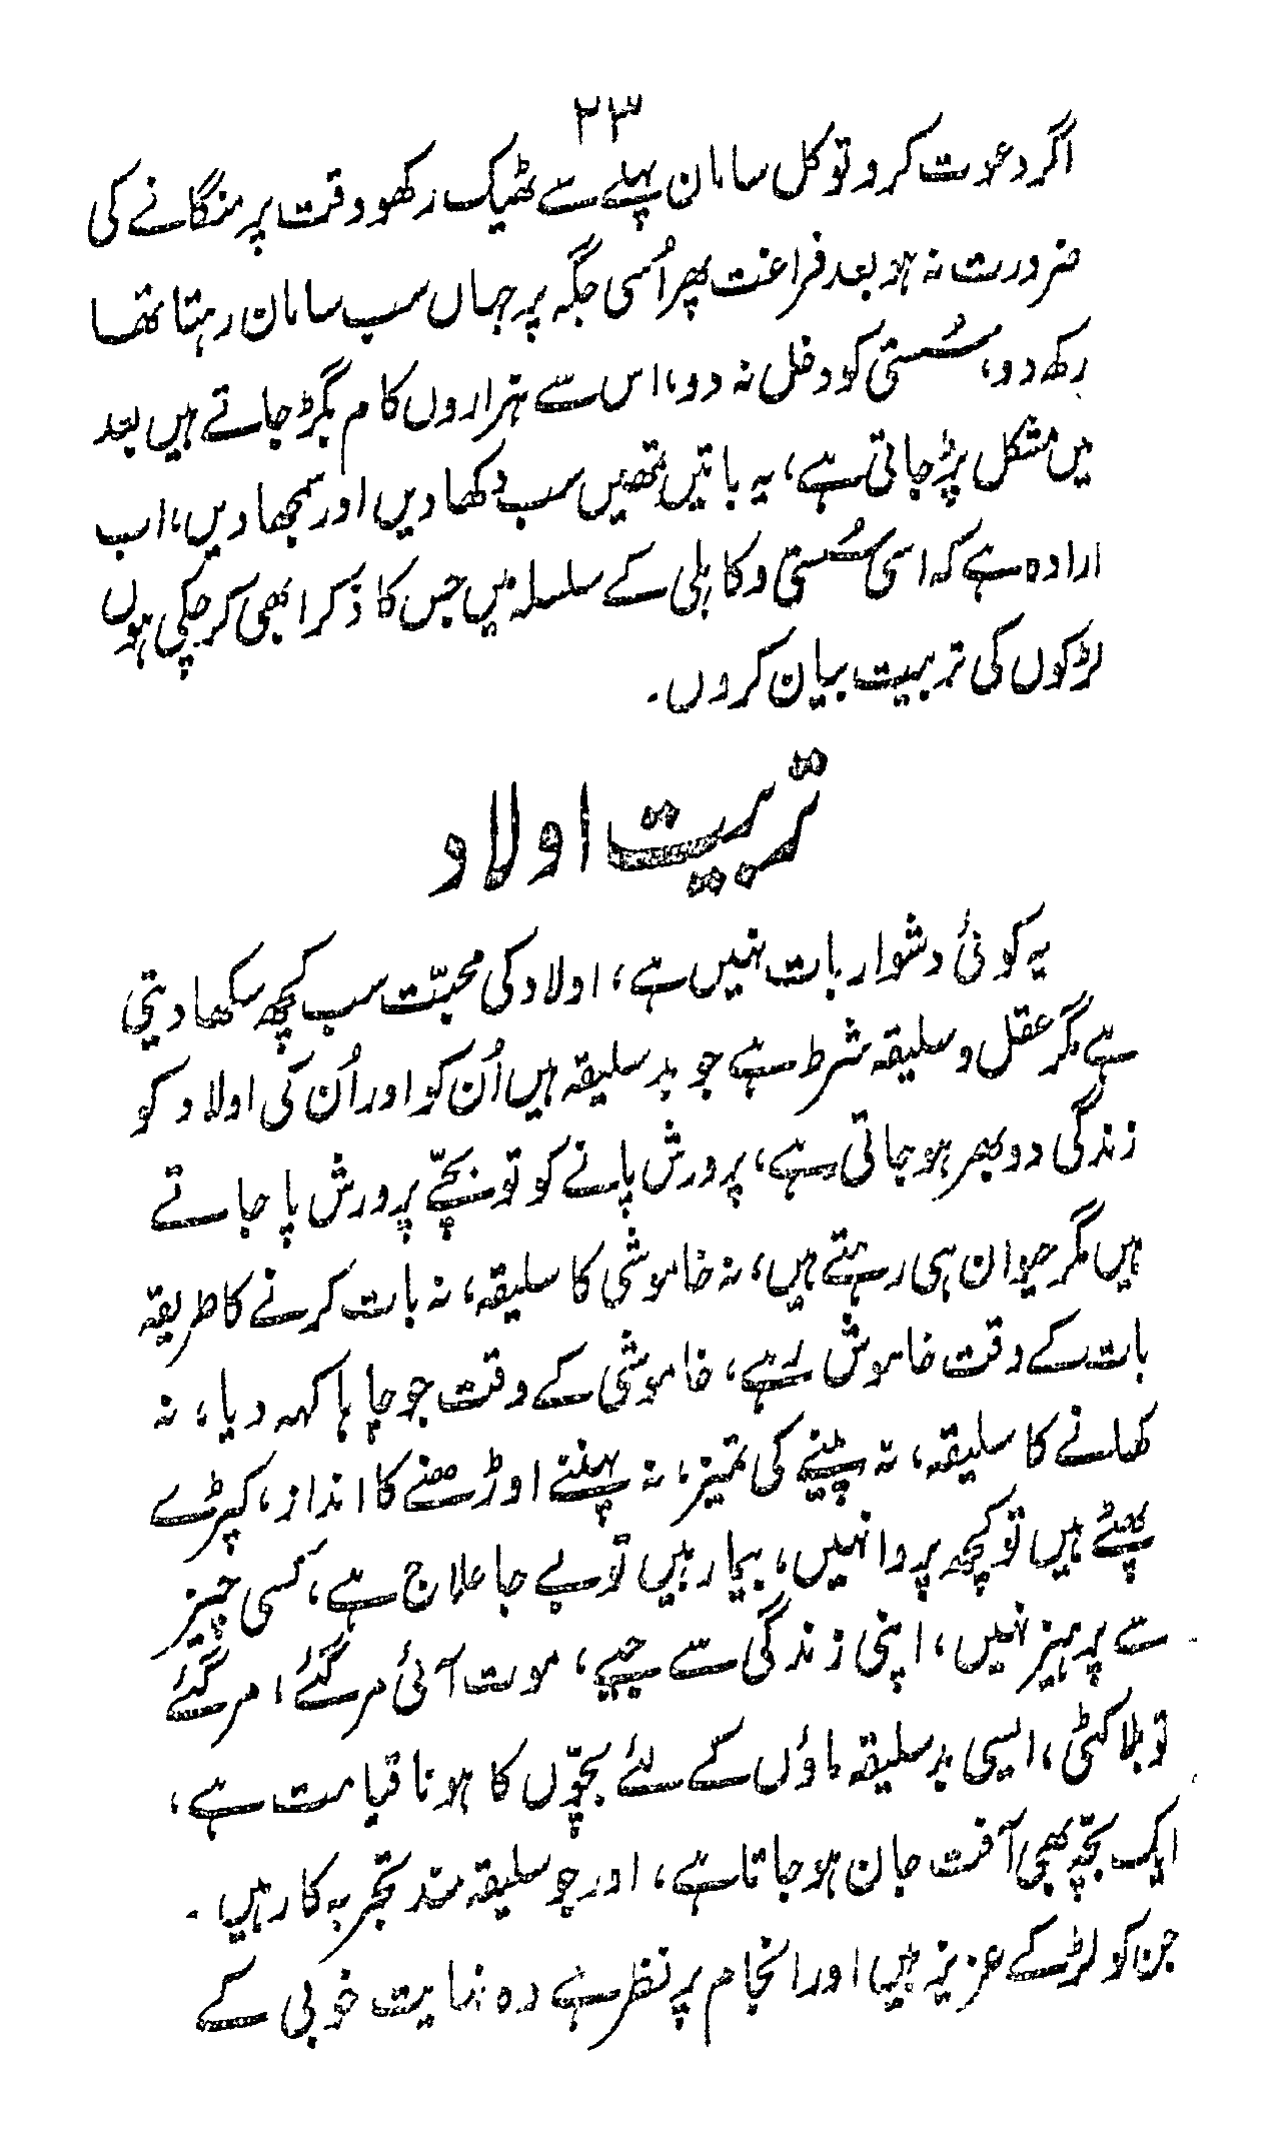 ۲۳
اگر دعوت کرو تو کل سامان پہلے سے ٹھیک رکھو وقت پر منگانے کی
ضرورت نہ ہو بعد فراغت پھر اُسی جگہ پر جہاں سب سامان رہتا تھا
رکھ دو، سُستی کو دخل نہ دو، اس سے ہزاروں کام بگڑ جاتے ہیں بعد
میں مشکل پڑ جاتی ہے، یہ باتیں تمھیں سب دکھا دیں اور سمجھا دیں، اب
ارادہ ہے کہ اسی سُستی و کاہلی کے سلسلہ میں جس کا ذکر ابھی کر چکی ہوں
لڑکوں کی تربیت بیان کروں۔
تربیت اولاد
یہ کوئی دشوار بات نہیں ہے، اولاد کی محبّت سب کچھ سکھا دیتی
ہے مگر عقل و سلیقہ شرط ہے جو بد سلیقہ ہیں اُن کو اور اُن کی اولاد کو
زندگی دوبھر ہو جاتی ہے، پرورش پانے کو تو بچّے پرورش پا جاتے
ہیں مگر حیوان ہی رہتے ہیں، نہ خاموشی کا سلیقہ، نہ بات کرنے کا طریقہ
بات کے وقت خاموش رہے، خاموشی کے وقت جو چاہا کہہ دیا، نہ
کھانے کا سلیقہ، نہ پینے کی تمیز، نہ پہننے اوڑھنے کا انداز، کپڑے
پھٹے ہیں تو کچھ پروا نہیں، بیمار ہیں تو بے جا علاج ہے، کسی چیز
سے پرہیز نہیں، اپنی زندگی سے جیے، موت آئی مر گئے، مر گئے
تو بلا کٹی، ایسی بد سلیقہ ماؤں کے لئے بچّوں کا ہونا قیامت ہے،
ایک بچّہ بھی آفت جان ہو جاتا ہے، اور جو سلیقہ مند تجربہ کار ہیں۔
جن کو لڑکے عزیز ہیں اور انجام پر نظر ہے وہ نہایت خوبی کے